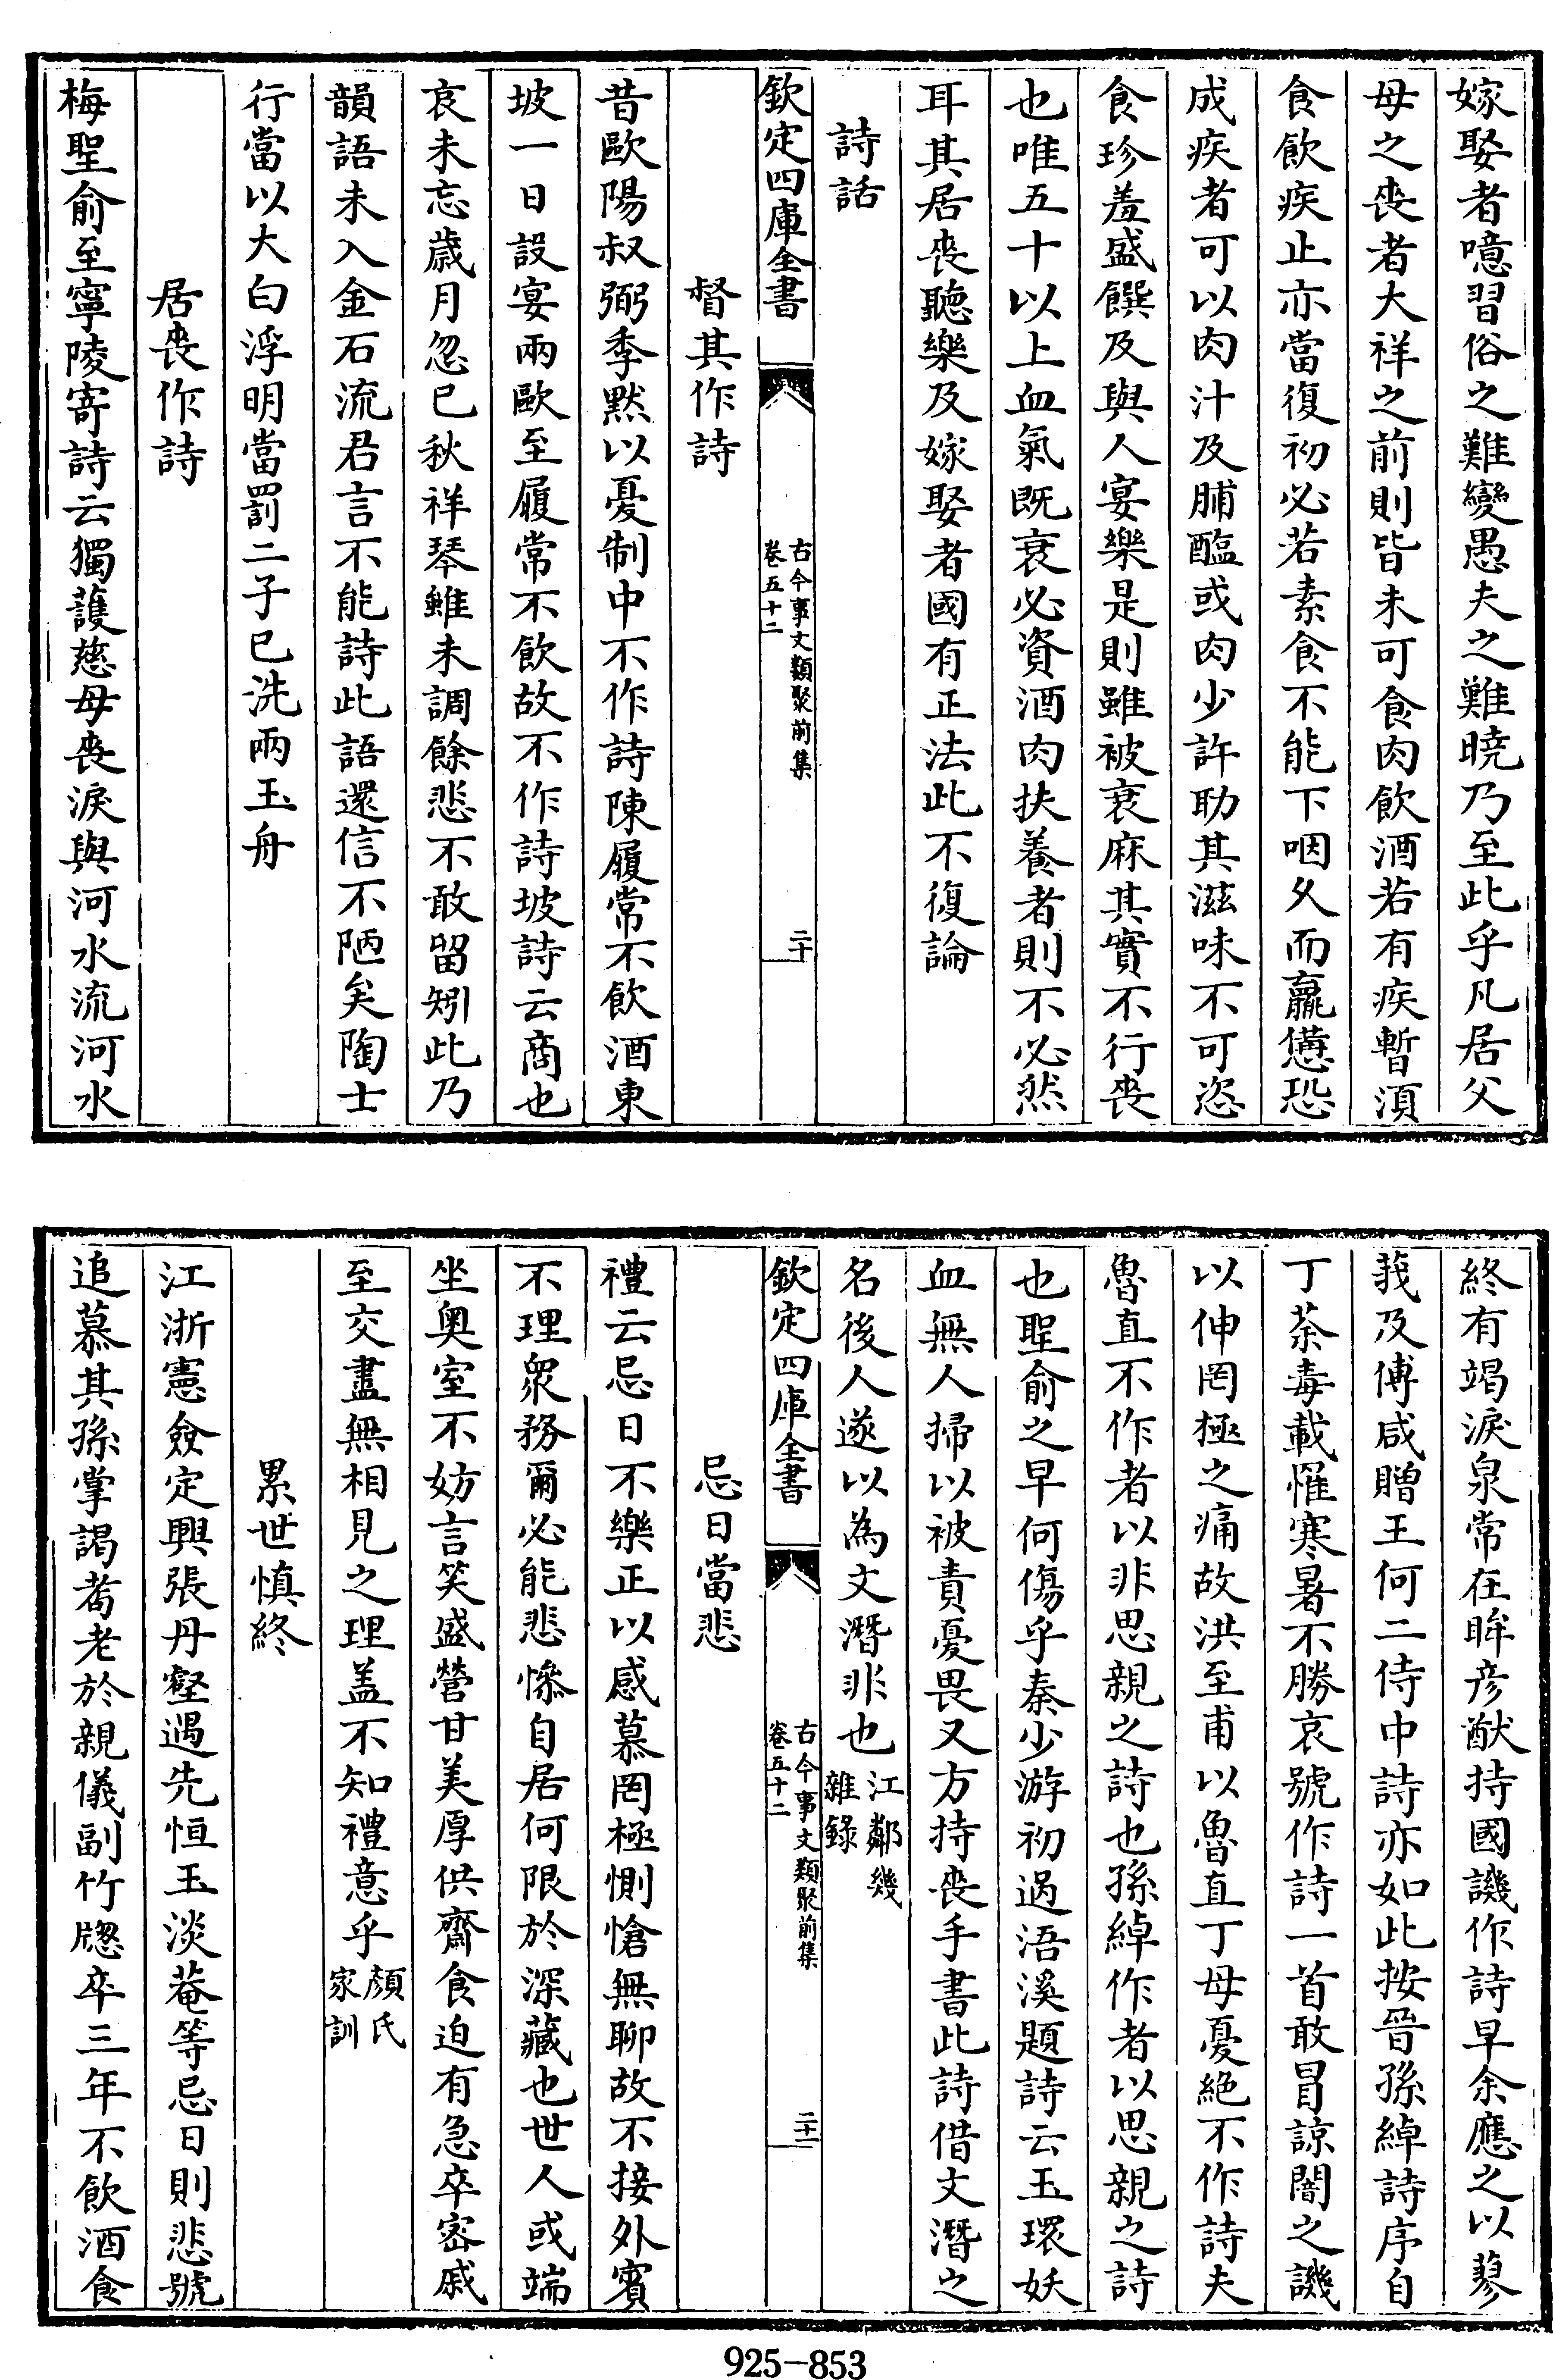 嫁娶者噫習俗之難變愚夫之難曉乃至此乎凡居父
母之喪者大祥之前則皆未可食肉飲酒若有疾暫須
食飲疾止亦當復初必若素食不能下咽久而羸憊恐
成疾者可以肉汁及脯醢或肉少許助其滋味不可恣
食珍羞盛饌及與人宴樂是則雖被衰麻其實不行喪
也唯五十以上血氣既衰必資酒肉扶養者則不必然
耳其居喪聽樂及嫁娶者國有正法此不復論
詩話
欽定四庫全書
古今事文類聚前集
卷五十二
二十
督其作詩
昔歐陽叔弼季黙以憂制中不作詩陳履常不飲酒東
坡一日設宴兩歐至履常不飲故不作詩坡詩云商也
哀未忘歲月忽已秋祥琴雖未調餘悲不敢留矧此乃
韻語未入金石流君言不能詩此語還信不陋矣陶士
行當以大白浮明當罰二子已洗兩玉舟
居喪作詩
梅聖俞至寧陵寄詩云獨護慈母喪淚與河水流河水
終有竭淚泉常在眸彦猷持國譏作詩早余應之以蓼
莪及傅咸贈王何二侍中詩亦如此按晉孫綽詩序自
丁荼毒載罹寒暑不勝哀號作詩一首敢冒諒闇之譏
以伸罔極之痛故洪至甫以魯直丁母憂絶不作詩夫
魯直不作者以非思親之詩也孫綽作者以思親之詩
也聖俞之早何傷乎秦少游初過浯溪題詩云玉環妖
血無人掃以被責憂畏又方持喪手書此詩借文潛之
名後人遂以為文潛非也江鄰幾
雜錄
欽定四庫全書
古今事文類聚前集
卷五十二
二十一
忌日當悲
禮云忌日不樂正以感慕罔極惻愴無聊故不接外賓
不理衆務爾必能悲慘自居何限於深藏也世人或端
坐奥室不妨言笑盛營甘美厚供齋食迫有急卒密戚
至交盡無相見之理盖不知禮意乎顏氏
家訓
累世慎終
江浙憲僉定興張丹壑遇先恒玉淡菴等忌日則悲號
追慕其孫掌謁耉老於親儀副竹牕卒三年不飲酒食
925-853